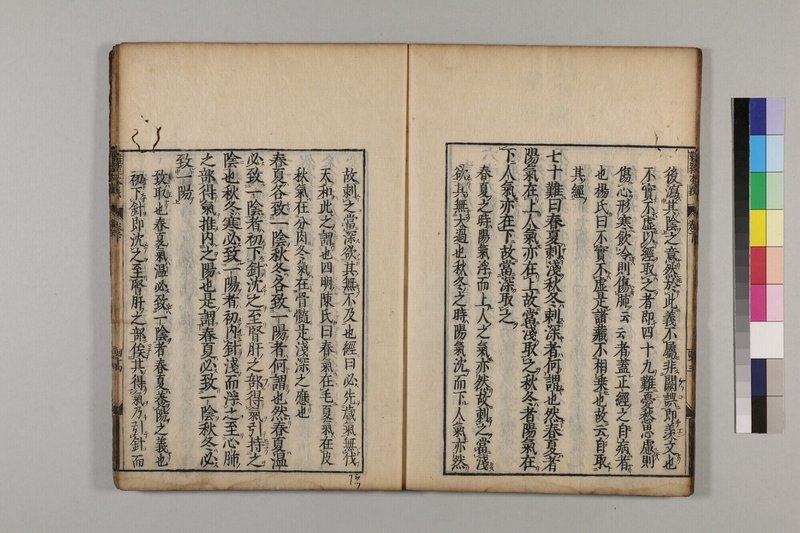 後瀉其陰之意然於此義不屬非闕誤即羨文也
不實不虛以經取之者即四十九難憂愁思慮則
傷心形寒飲冷則傷肺云云者蓋正經之自病者
也楊氏曰不實不虛是諸藏不相乗也故云自取
其經
七十難曰春夏刺淺秋冬刺深者何謂也然春夏者
陽氣在上人氣亦在上故當淺取之秋冬者陽氣在
下人氣亦在下故當深取之
春夏之時陽氣浮而上人之氣亦然故刺之當淺
欲其無太過也秋冬之時陽氣沈而下人氣亦然
故刺之當深欲其無不及也經曰必先歲氣無伐
天和此之謂也四明陳氏曰春氣在毛夏氣在皮
秋氣在分肉冬氣在骨髓是淺深之應也
春夏各致一陰秋冬各致一陽者何謂也然春夏溫
必致一陰者初下針沈之至腎肝之部得氣引持之
陰也秋冬寒必致一陽者初內針淺而浮之至心肺
之部得氣推內之陽也是謂春夏必致一陰秋冬必
致一陽
致取也春夏氣溫必致一陰者春夏養陽之義也
初下針即沈之至腎肝之部俟其得氣乃引針而